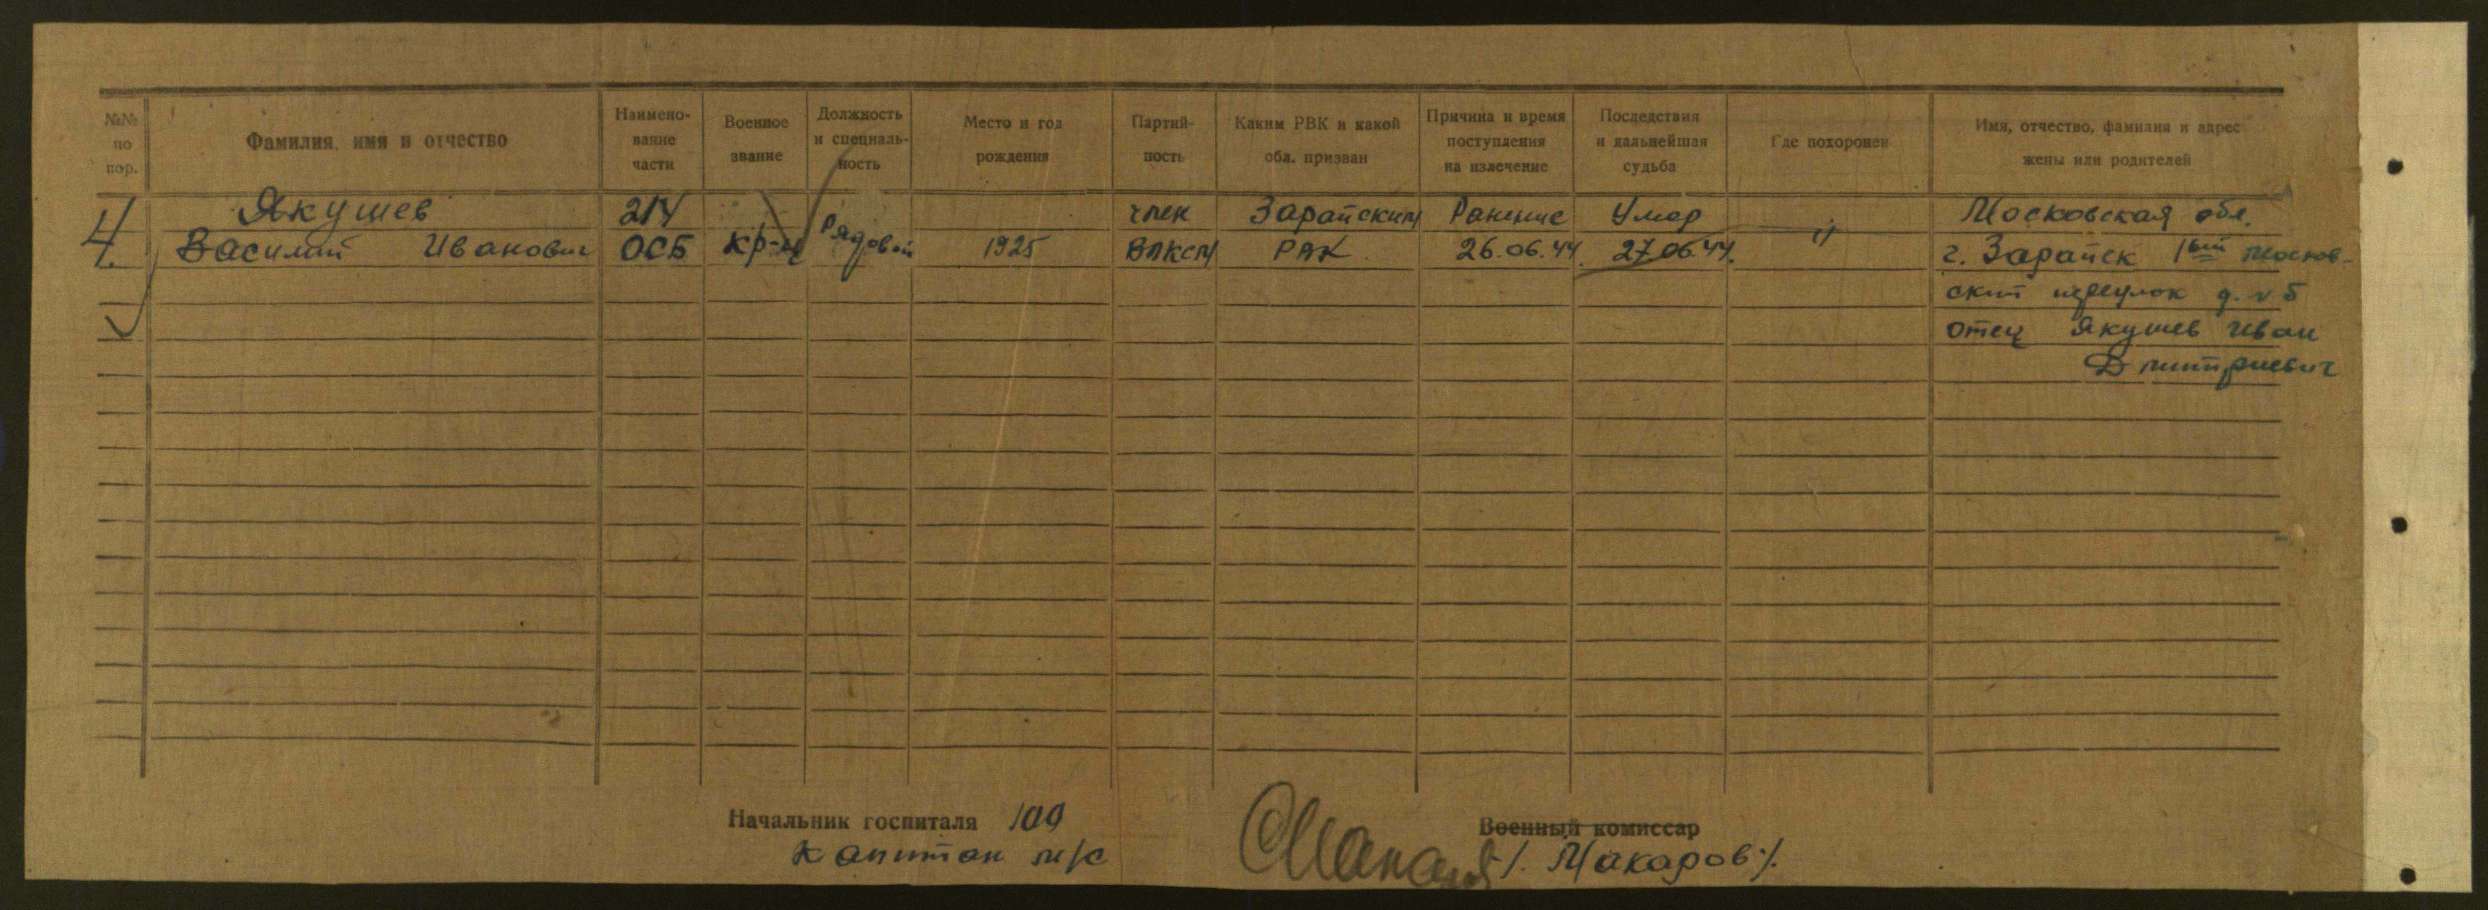 №№ по пор.
Фамилия, имя и отчество
Наимено-
вание
части
Военное
звание
Должность
и специаль-
ность
Место и год
рождения
Партий-
ность
Каким РВК и какой
обл. призван
Причина и время
поступления
на излечение
Последствия
и дальнейшая
судьба
Где похоронен
Имя, отчество, фамилия и адрес
жены или родителей
4.
Якушев
Василий Иванович
214
ОСБ
кр-ц
Рядовой
1925
член
ВЛКСМ
Зарайским
РВК
Ранение
26.06.44.
Умер
27.06.44.
— " —
Московская обл.
г. Зарайск 1ый Москов-
ский переулок д. 5
отец Якушев Иван
Дмитриевич
Начальник госпиталя 109
капитан м/с
Военный комиссар
/. Макаров ./.